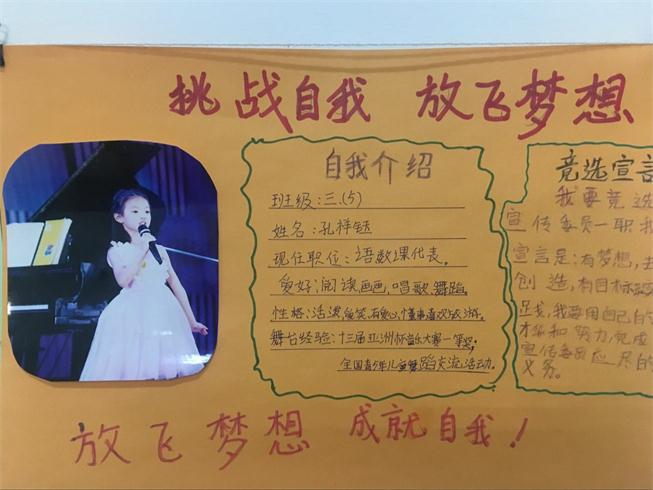 挑战自我 放飞梦想
自我介绍
班级:三.(5)
姓名:孔祥钰
现任职位:语数课代表.
爱好:阅读,画画,唱歌,舞蹈.
性格:活泼,爱笑,有爱心,懂事,喜欢旅游.
舞台经验:十三届亚洲杯音乐大赛一等奖;
全国青少年儿童舞蹈交流活动.
竞选宣言
我要竞选
宣传委员一职我
宣言是:有梦想,去
创造,有目标
我要用自己的
才华和努力,完成
宣传委员应尽的
义务。
放飞梦想 成就自我!